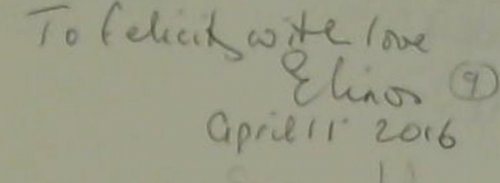 To Felicity with love
Elinor (9)
April 11 2016